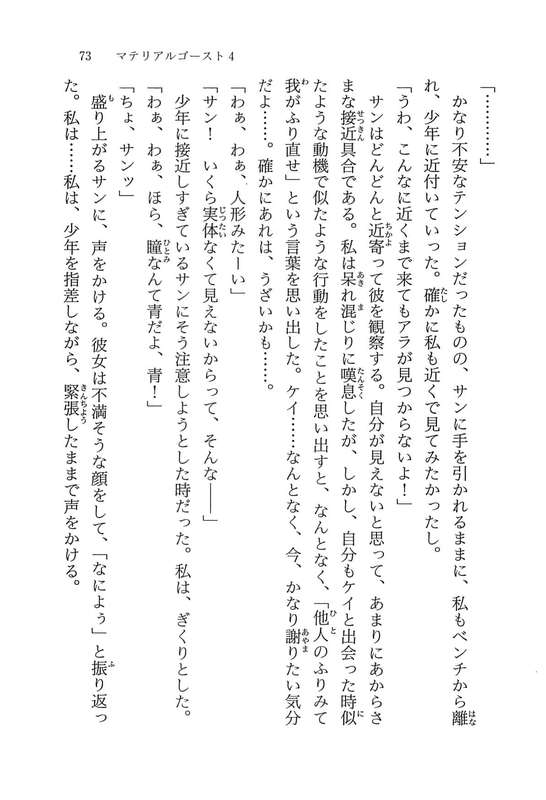 73　マテリアルゴースト4
「…………」
　かなり不安なテンションだったものの、サンに手を引かれるままに、私もベンチから離
れ、少年に近付いていった。確かに私も近くで見てみたかったし。
「うわ、こんなに近くまで来てもアラが見つからないよ！」
　サンはどんどんと近寄って彼を観察する。自分が見えないと思って、あまりにあからさ
まな接近具合である。私は呆れ混じりに嘆息したが、しかし、自分もケイと出会った時似
たような動機で似たような行動をしたことを思い出すと、なんとなく、「他人のふりみて
我がふり直せ」という言葉を思い出した。ケイ……なんとなく、今、かなり謝りたい気分
だよ……。確かにあれは、うざいかも……。
「わぁ、わぁ、人形みたーい」
「サン！　いくら実体なくて見えないからって、そんな――」
　少年に接近しすぎているサンにそう注意しようとした時だった。私は、ぎくりとした。
「わぁ、わぁ、ほら、瞳なんて青だよ、青！」
「ちょ、サンッ」
　盛り上がるサンに、声をかける。彼女は不満そうな顔をして、「なによぅ」と振り返っ
た。私は……私は、少年を指差しながら、緊張したままで声をかける。